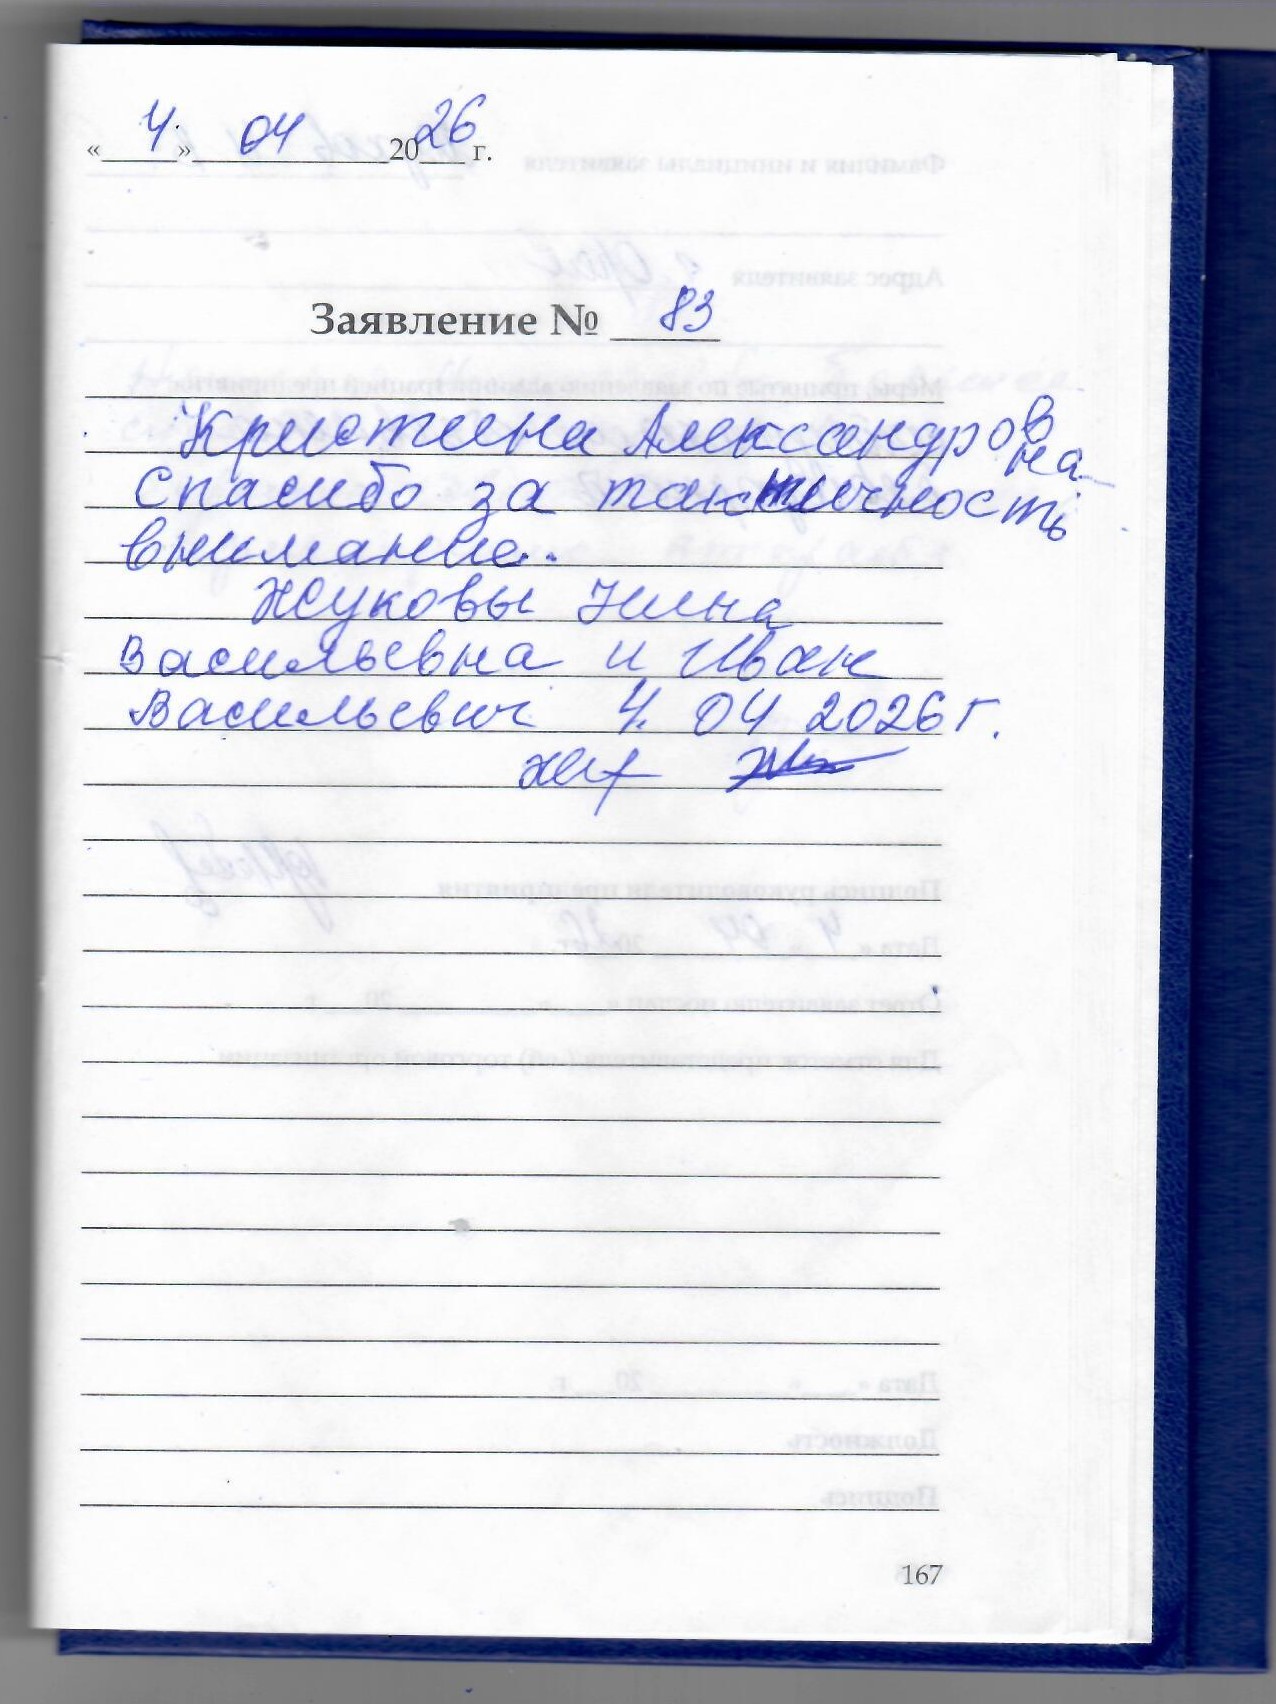 « 4. » 04 2026 г.
Заявление № 83
Кристина Александровна
Спасибо за тактичность
внимание..
Жуковы Нина
Васильевна и Иван
Васильевич 4. 04 2026 г.
167